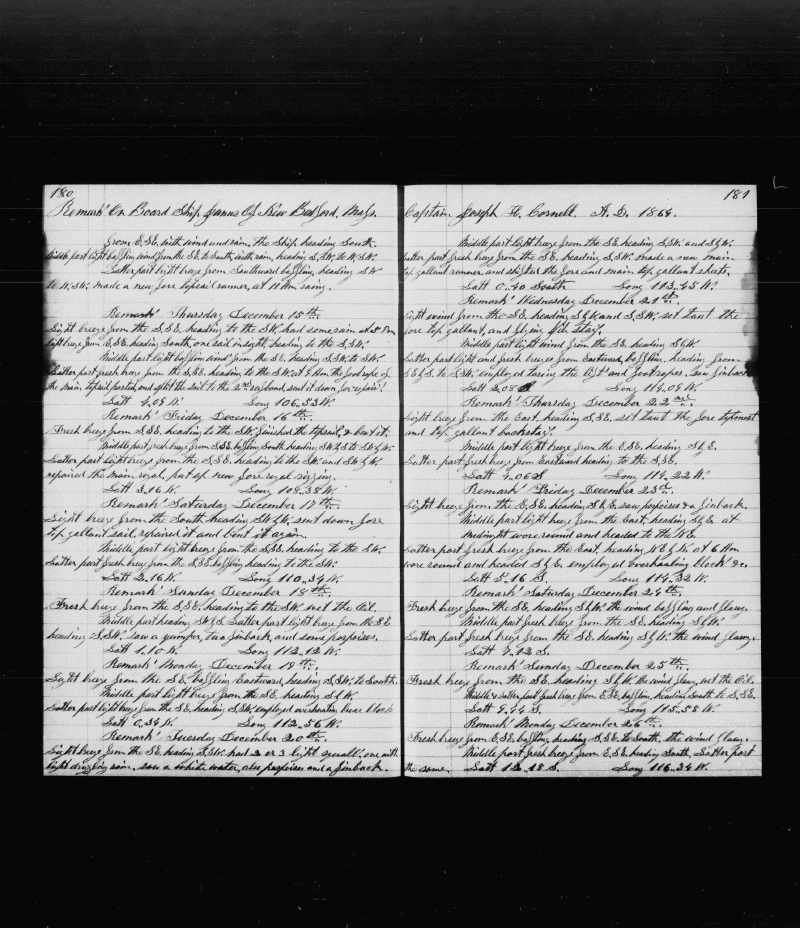 180
Remark' On Board Ship Janus Of New Bedford. Mass.
from E,SE, with wind and rain, the Ship heading South.
Middle part light baffling wind from the SE to South, with rain, heading S,SW, to W.SW.
Latter part light breeze from Southward baffling, heading SW
to W.SW. made a new topsail runner, at 11 Am raing.
Remark' Thursday December 15th.
Light breeze from the S,SE, heading to the SW. had some rain at 5 Pm
light breeze from E,SE, heading South, one sail in sight, heading to the S,SW.
Middle part light baffling wind from the SE. heading S,SW. to SW.
Latter part fresh breeze from the S,SE. heading to the SW. at 9 Am the foot rope of
the main topsail parted, and split the sail to the 2nd reefband, sent it down for repair!
Latt 4,,09 N. Long 106,,53 W.
Remark' Friday December 16th.
Fresh breeze from S,SE. heading to the SW. finished the topsail, & bent it.
Middle part fresh breeze from S,SE. baffling South, heading SW by S to SW by W.
Latter part light breeze from the S,SE. heading to the SW. and SW by W.
repaired the main royal, put up new fore royal rigging.
Latt 3,,16 N. Long 108,,38 W.
Remark' Saturday December 17th.
Light breeze from the South, heading SW by W. sent down fore
top gallant sail, repaired it and bent it again.
Middle part light breeze from the S,SE. heading to the SW.
Latter part fresh breeze from the S,SE. baffling heading to the SW.
Latt 2,,16 N. Long 110,,34 W.
Remark' Sunday December 18th.
Fresh breeze from the S,SE, heading to the SW. wet the Oil.
Middle part heading SW by S. Latter part light breeze from the SE
heading S,SW. saw a grumper, two finback, and some porpoises.
Latt 1,,10 N. Long 112,,12 W.
Remark' Monday December 19th.
Light breeze from the SE, baffling Eastward, heading S,SW. to South.
Middle part light breeze from the SE. heading S by W.
Latter part light breeze from the SE, heading S,SW. employed overhauling brace block
Latt 0,,34 N. Long 112,,56 W.
Remark' Tuesday December 20th.
Light breeze from the SE, heading S,SW. had 2 or 3 light squall, one with
light drizzling rain, saw a white water, also porpoises and a finback.
181
Captain Joseph H. Cornell. A. D. 1864.
Middle part light breeze from the SE. heading S,SW. and S by W.
Latter part fresh breeze from the SE. heading S,SW. made a new main
top gallant runner, and shifted the fore and main top gallant sheets.
Latt 0,,40 South Long 113,,45 W.
Remark' Wednesday December 21st.
Light wind from the SE. heading S by W and S,SW. set taut the
fore top gallant, and flying jib stay'.
Middle part light wind from the SE. heading S by W.
Latter part light and fresh breezes from Eastward, baffling. heading from
SE by S. to S,SW. employed taring the lift and footropes, saw finback
Latt 2,,08 S Long 114,,09 W.
Remark' Thursday December 22nd.
Light breeze from the East, heading S,SE. set taut the fore topmast
and top gallant backstay'.
Middle part light breeze from the E,SE. heading S by E.
Latter part fresh breeze from Eastward heading to the S,SE.
Latt 4,,06 S Long 114,,22 W.
Remark' Friday December 23rd.
Light breeze from the E,SE. heading S by E. saw porpoises & a finback.
Middle part light breeze from the East, heading S by E. at
Midnight wore round and headed to the NE.
Latter part fresh breeze from the East, heading N E by N. at 6 Am
wore round and headed S by E. employed overhauling block &c.
Latt 5,,16 S. Long 114,,32 W.
Remark' Saturday December 24th.
Fresh breeze from the SE, heading S by W. the wind baffling and flawy.
Middle part fresh breeze from the SE. heading S by W.
Latter part fresh breeze from the SE, heading S by W. the wind flawy.
Latt 7,,12 S.
Remark' Sunday December 25th.
Fresh breeze from the SE, heading S by W. the wind flawy, wet the Oil.
Middle & Latter part fresh breeze from E,SE, baffling, heading South to S,SE.
Latt 9,,44 S. Long 115,,58 W.
Remark' Monday December 26th.
Fresh breeze from E,SE, baffling, heading S,SE. to South, the wind flawy.
Middle part fresh breeze from E,SE, heading South, Latter part
the same. Latt 12,,18 S. Long 116,,34 W.